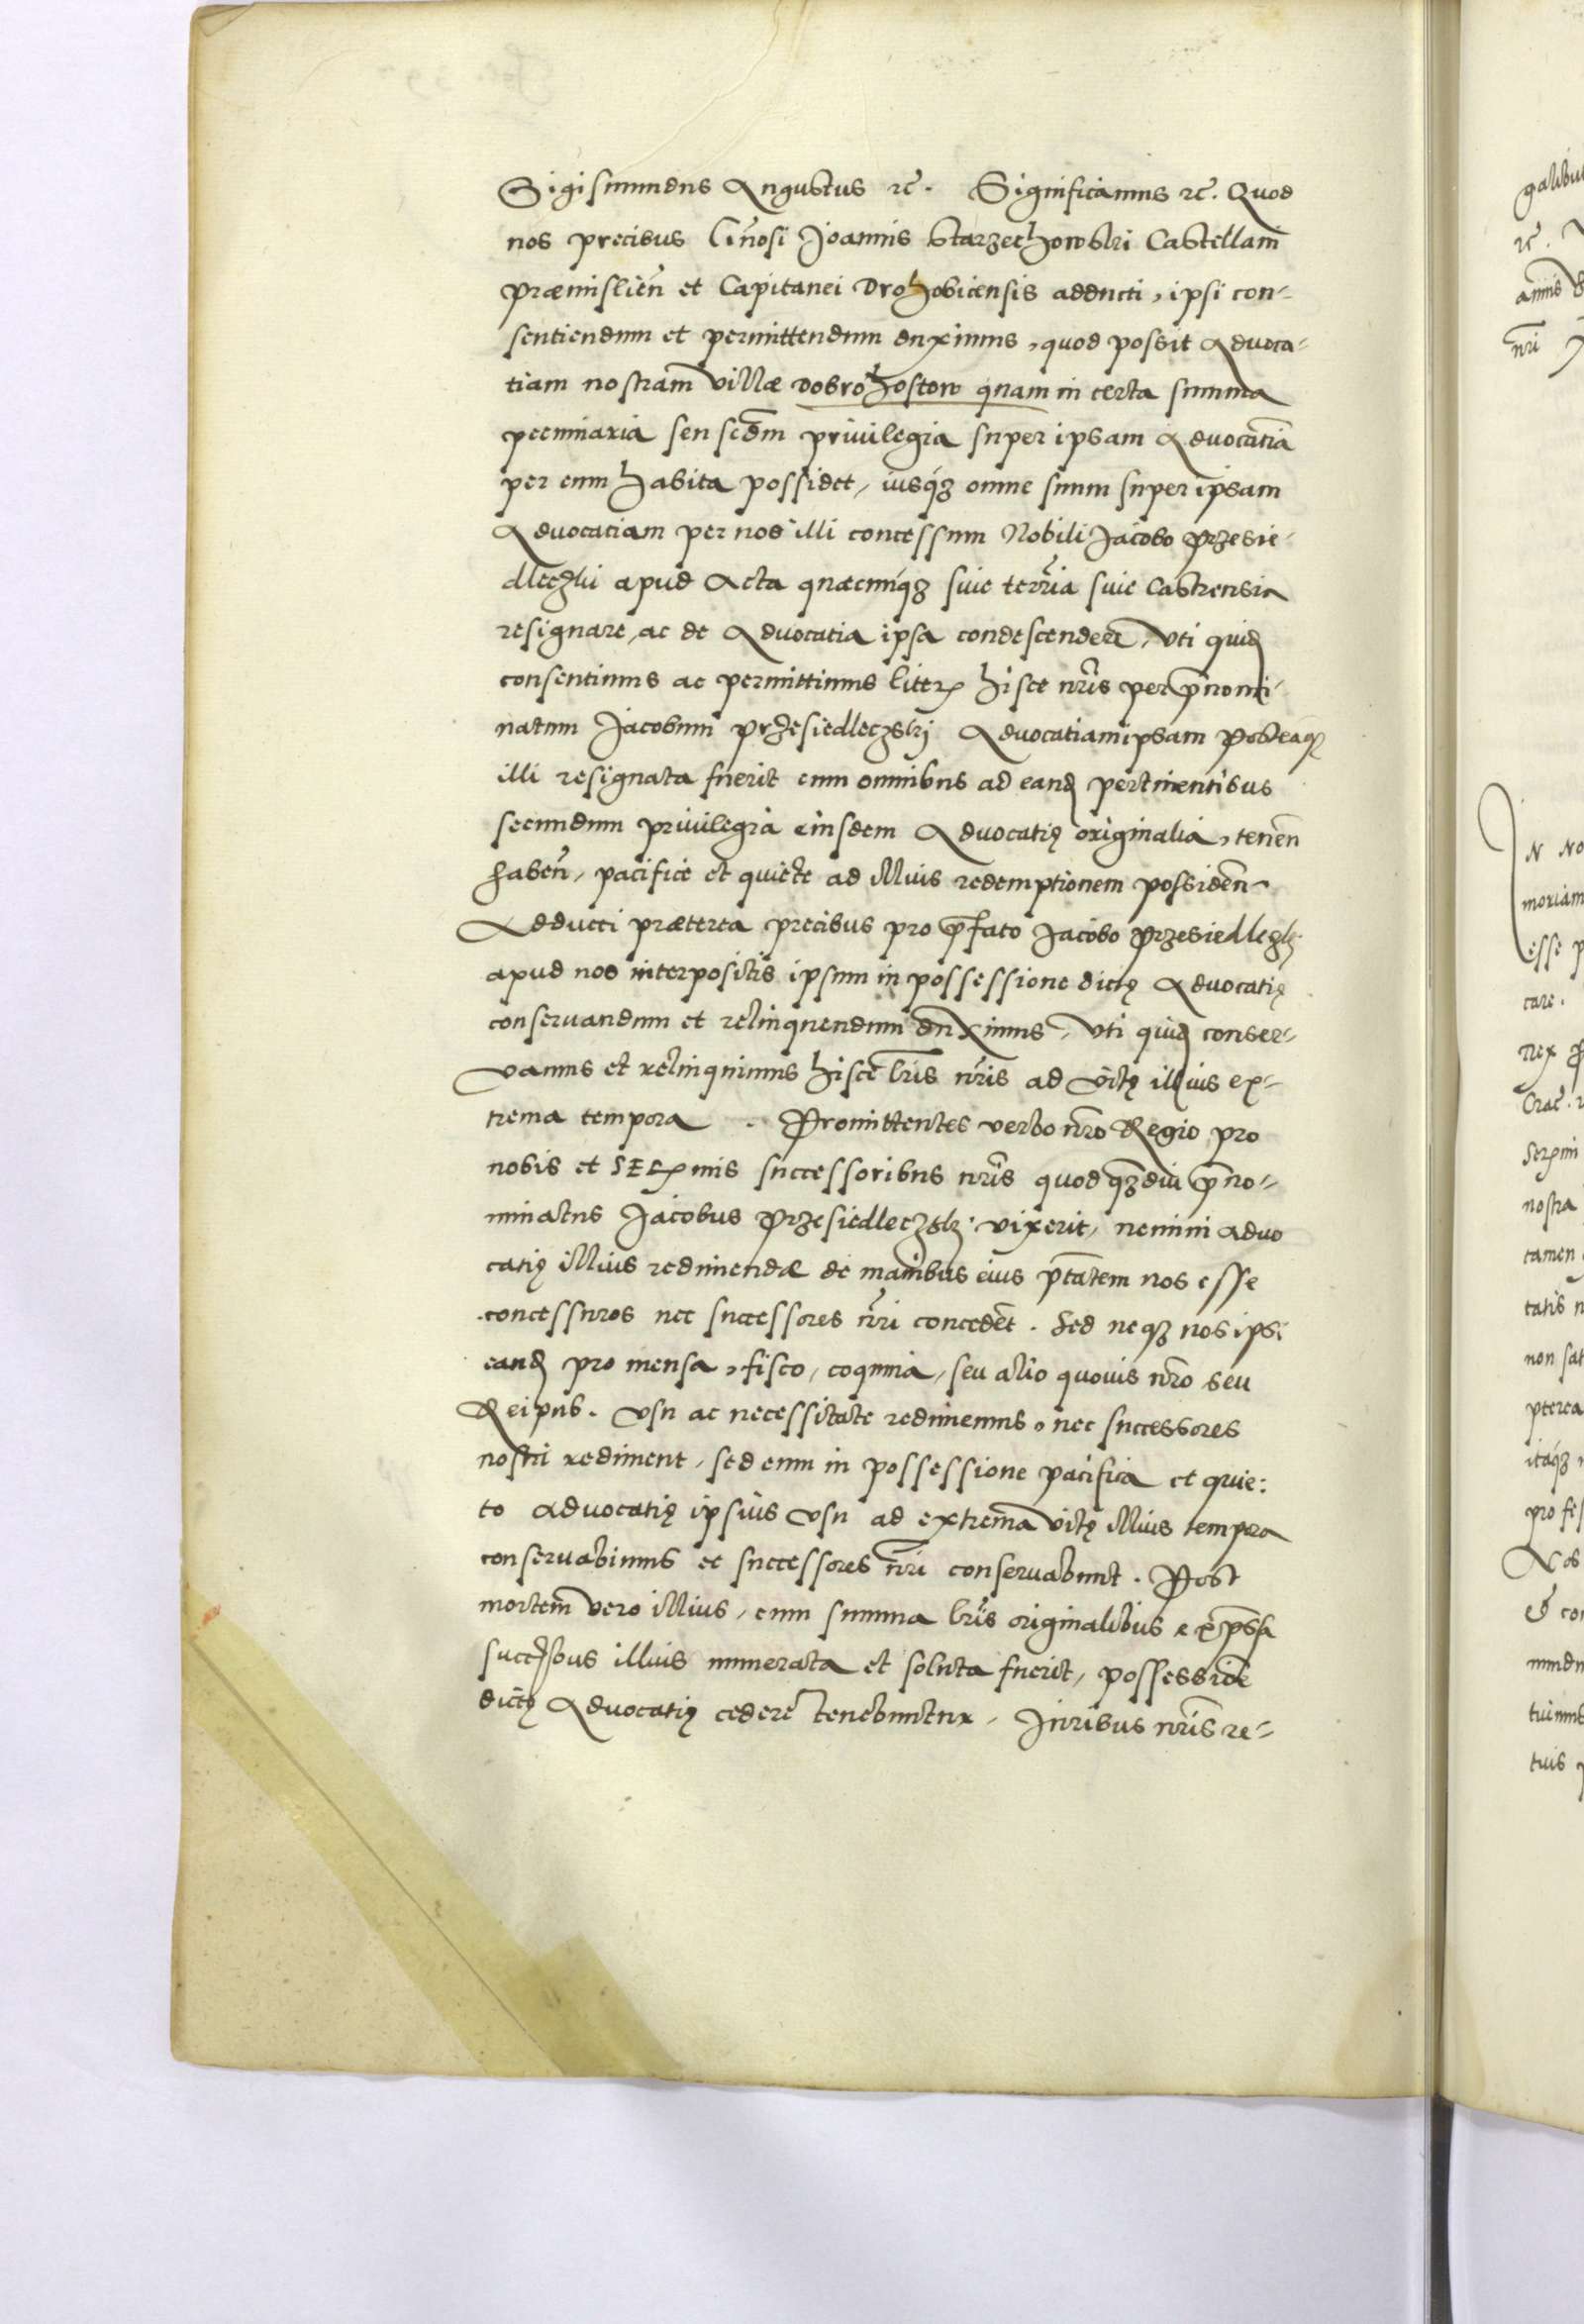 Sigismundus Augustus rc̄. Significamus rc̄. Quod
nos precibus Gn̄osi Joannis Starzechowski Castellani
Præmislien̄ et Capitanei Drohobicensis adducti, ipsi con-
sentiendum et permittendum duximus, quod possit Advoca-
tiam nostram villæ Dobrohostow quam in certa summa
pecuniaria seu scd̄m privilegia super ipsam Advocatiā
per eum habita possidet, iusq́ꝫ omne suum super ipsam
Advocatiam per nos illi concessum Nobili Jacobo Przesie-
dleczki apud Acta quæcunq́ꝫ siue terr̄ia siue Castrensia
resignare, ac de Advocatia ipsa condescendere, Vti quiđ
consentimus ac permittimus literꝭ hisce nr̄is per p̄nomi-
natum Jacobum przesiedleczskj Advocatiam ipsam Posteaqꝫ
illi resignata fuerit cum omnibus ad eanđ pertinentibus
secundum privilegia eiusdem Advocatię originalia, tenen̄
haben̄, pacifice et quiete ad illius redemptionem possiden̄.
Adducti præterea precibus pro p̄fato Jacobo Przesiedleczk.
apud nos interpositis ipsum in possessione dictę Advocatię
conservandum et relinquendum duximus, Vti quiđ conser-
vamus et relinquimus hisce lr̄is nr̄is ad vitę illius ex-
trema tempora. Promittentes verbo nr̄o Regio pro
nobis et SERꝭmis successoribus nr̄is quod qꝫdiu p̄no-
minatus Jacobus Przesiedleczsk: vixerit, nemini advo
catię illius redimendæ de manibus eius ptātem nos esse
concessuros nec successores nr̄i concedēt. Sed neqꝫ nos ipsi
eanđ pro mensa, fisco, coquina, seu alio quovis nr̄o seu
Reipub. Vsu ac necessitate redimemus, nec successores
nostri rediment, sed eum in possessione pacifica et quie:
to advocatię ipsius Vsu ad extrema vitę illius tempora
conservabimus et successores nr̄i conservabunt. Post
mortem vero illius, cum summa lr̄is originalibus exp̄ssa
successoribus illius numerata et soluta fuerit, possessiōe
dictę Advocatię cedere tenebuntur, Juribus nr̄is re-